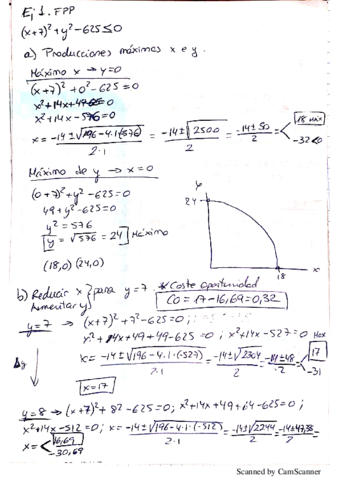 Ej 1. FPP
(x+7)²+y²-625≤0
a) Producciones máximas x e y.
Máximo x → y=0
(x+7)²+0²-625=0
x²+14x+49-625=0
x²+14x-576=0
x = -14±√196-4·1·(-576) / 2·1 = -14±√2500 / 2 = -14±50 / 2 = < 18 máx
-32<0
Máximo de y → x=0
(0+7)²+y²-625=0
49+y²-625=0
y²=576
y=√576=24 Máximo
(18,0) (24,0)
y
24
18
x
b) Reducir x
Aumentar y } para y=7. * Coste oportunidad
CO=17-16,69=0,32
y=7 → (x+7)²+7²-625=0;
x²+14x+49+49-625=0; x²+14x-527=0
x = -14±√196-4·1·(-527) / 2·1 = -14±√2304 / 2 = -14±48 / 2 = < 17
-31
x=17
Δy
y=8 → (x+7)²+8²-625=0; x²+14x+49+64-625=0;
x²+14x-512=0; x = -14±√196-4·1·(-512) / 2·1 = -14±√2244 / 2 = -14±47,38 / 2 =
x = < 16,69
-30,69
Scanned by CamScanner